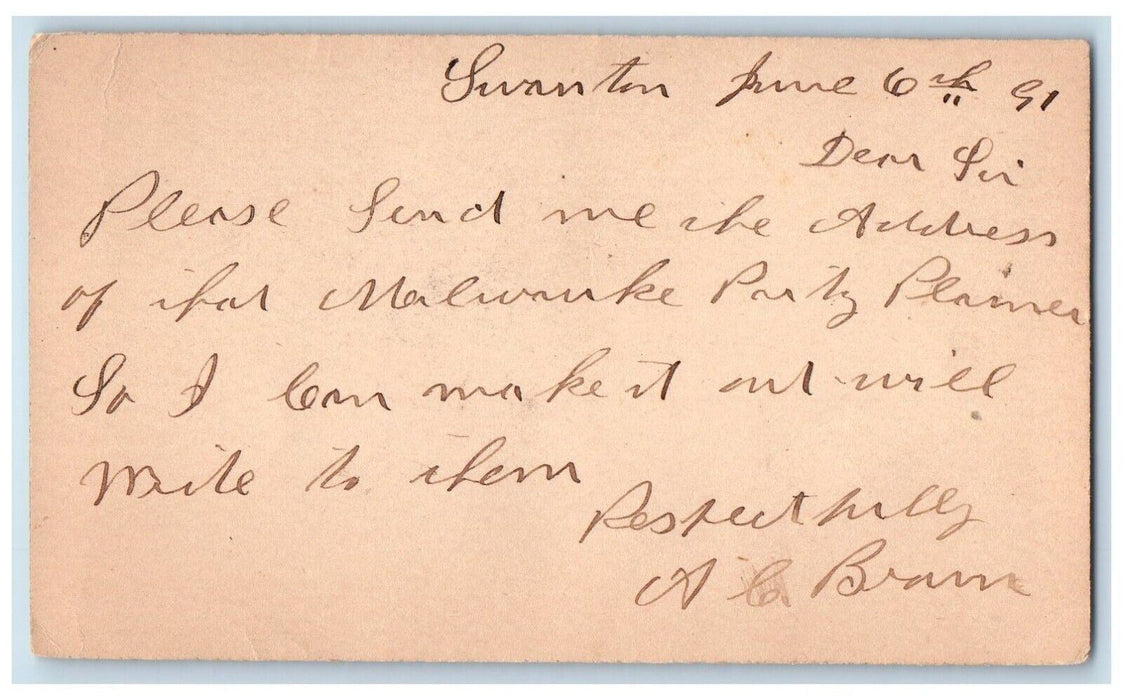 Swanton June 6th 91
Dear Sir
Please Send me the Address
of that Malwauke Party Plainer
So I Can make it out will
write to them
Respectfully
A C Brown